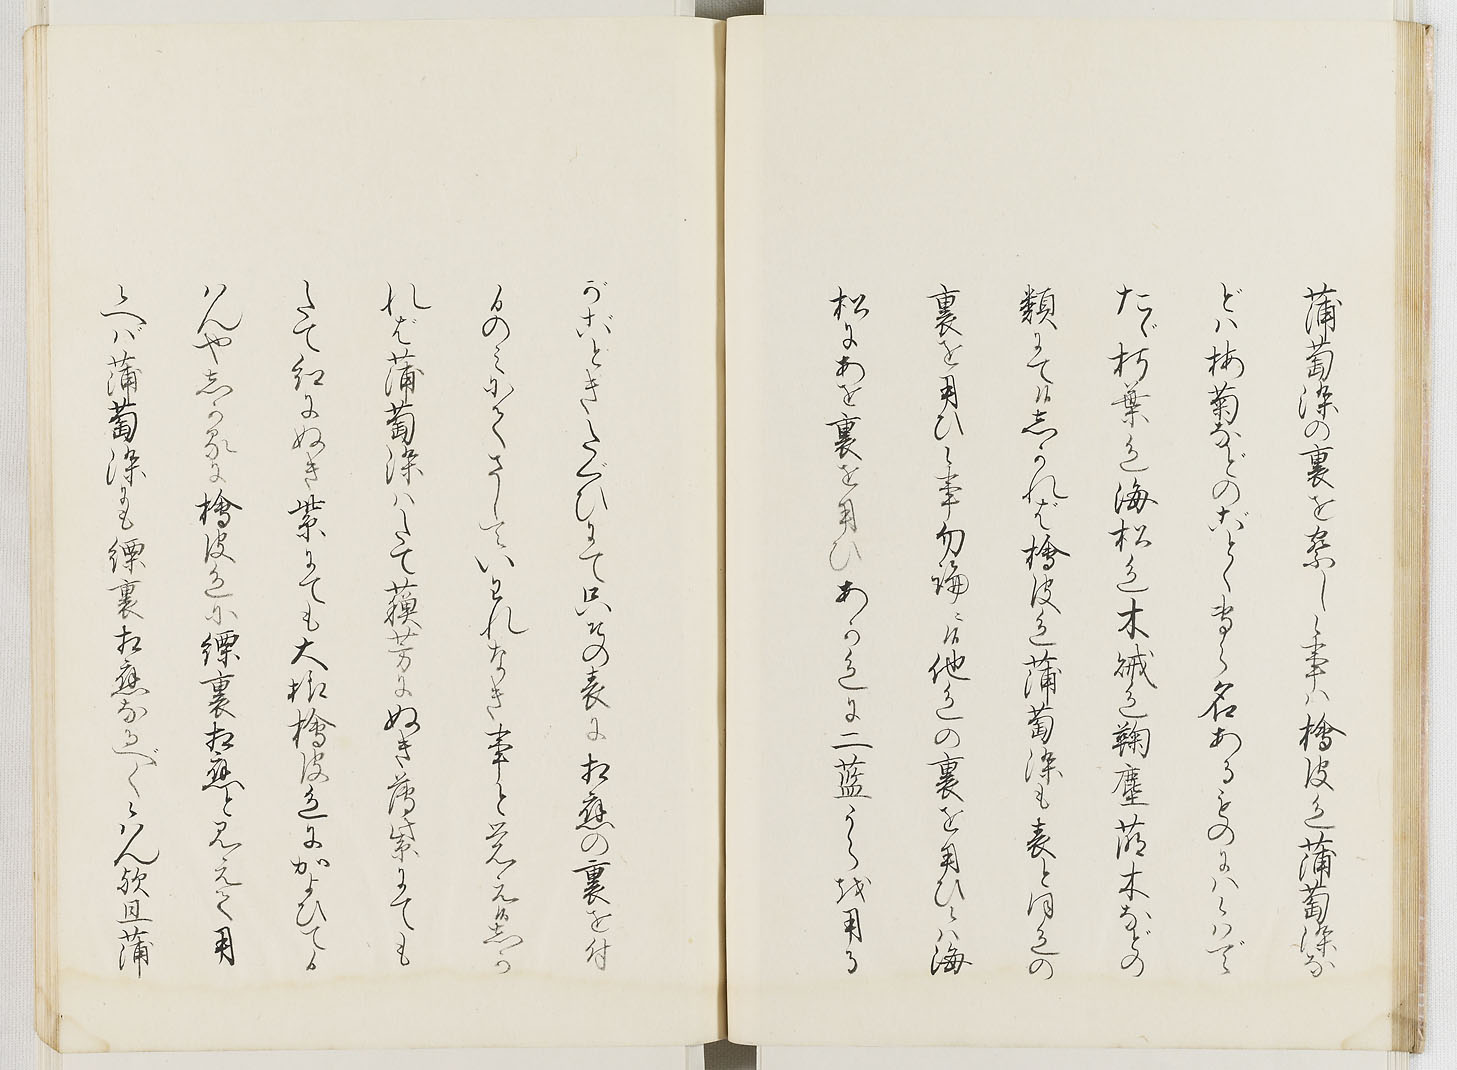 蒲萄染の裏を祭しゝ事ハ檜皮色蒲萄染な
どハ梅菊などのごとく時ゝ名あるものにハゝハで
たゞ朽葉色海松色木賊色麹塵蒲木などの
類にて候しかれば檜皮色蒲萄染も表と同色の
裏を用ひし事勿論に候他色の裏を用ひしハ海
松にあを裏を用ひあか色に二藍うらを用る
がごときたぐひにて只其の表に相應の裏を付
るのみにてさしていはれなき事と覚え候しか
れば蒲萄染ハたて蘇芳にぬき薄紫にても
たて紅にぬき紫にても大概檜皮色にかよひてゝ
ハんやしか処に檜皮色に縹裏相應と見えて用
へバ蒲萄染にも縹裏相應なるべくハん歟且蒲